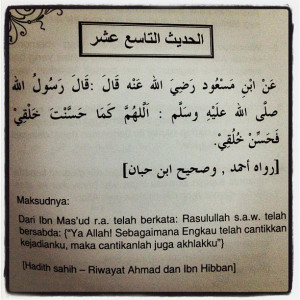 الحديث التاسع عشر
عَنْ ابْنِ مَسْعُود رَضِيَ الله عَنْه قَالَ :قَالَ رَسُوْلُ الله
صلَّى الله عَلَيْهِ وَسلَّم : اَللَّهُمَّ كَمَا حَسَّنْتَ خَلْقِيْ
فَحَسِّنْ خُلُقِيْ.
[رواه أحمد , وصحيح ابن حبان]
Maksudnya:
Dari Ibn Mas'ud r.a. telah berkata: Rasulullah s.a.w. telah
bersabda: {"Ya Allah! Sebagaimana Engkau telah cantikkan
kejadianku, maka cantikanlah juga akhlakku"}
[Hadith sahih – Riwayat Ahmad dan Ibn Hibban]